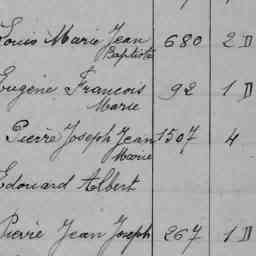 Louis Marie Jean 680 2 D
Baptiste
Eugène Francois 92 1 D
Marie
Pierre Joseph Jean 1507 4
Marie
Edouard Albert
Pierre Jean Joseph 267 1 D